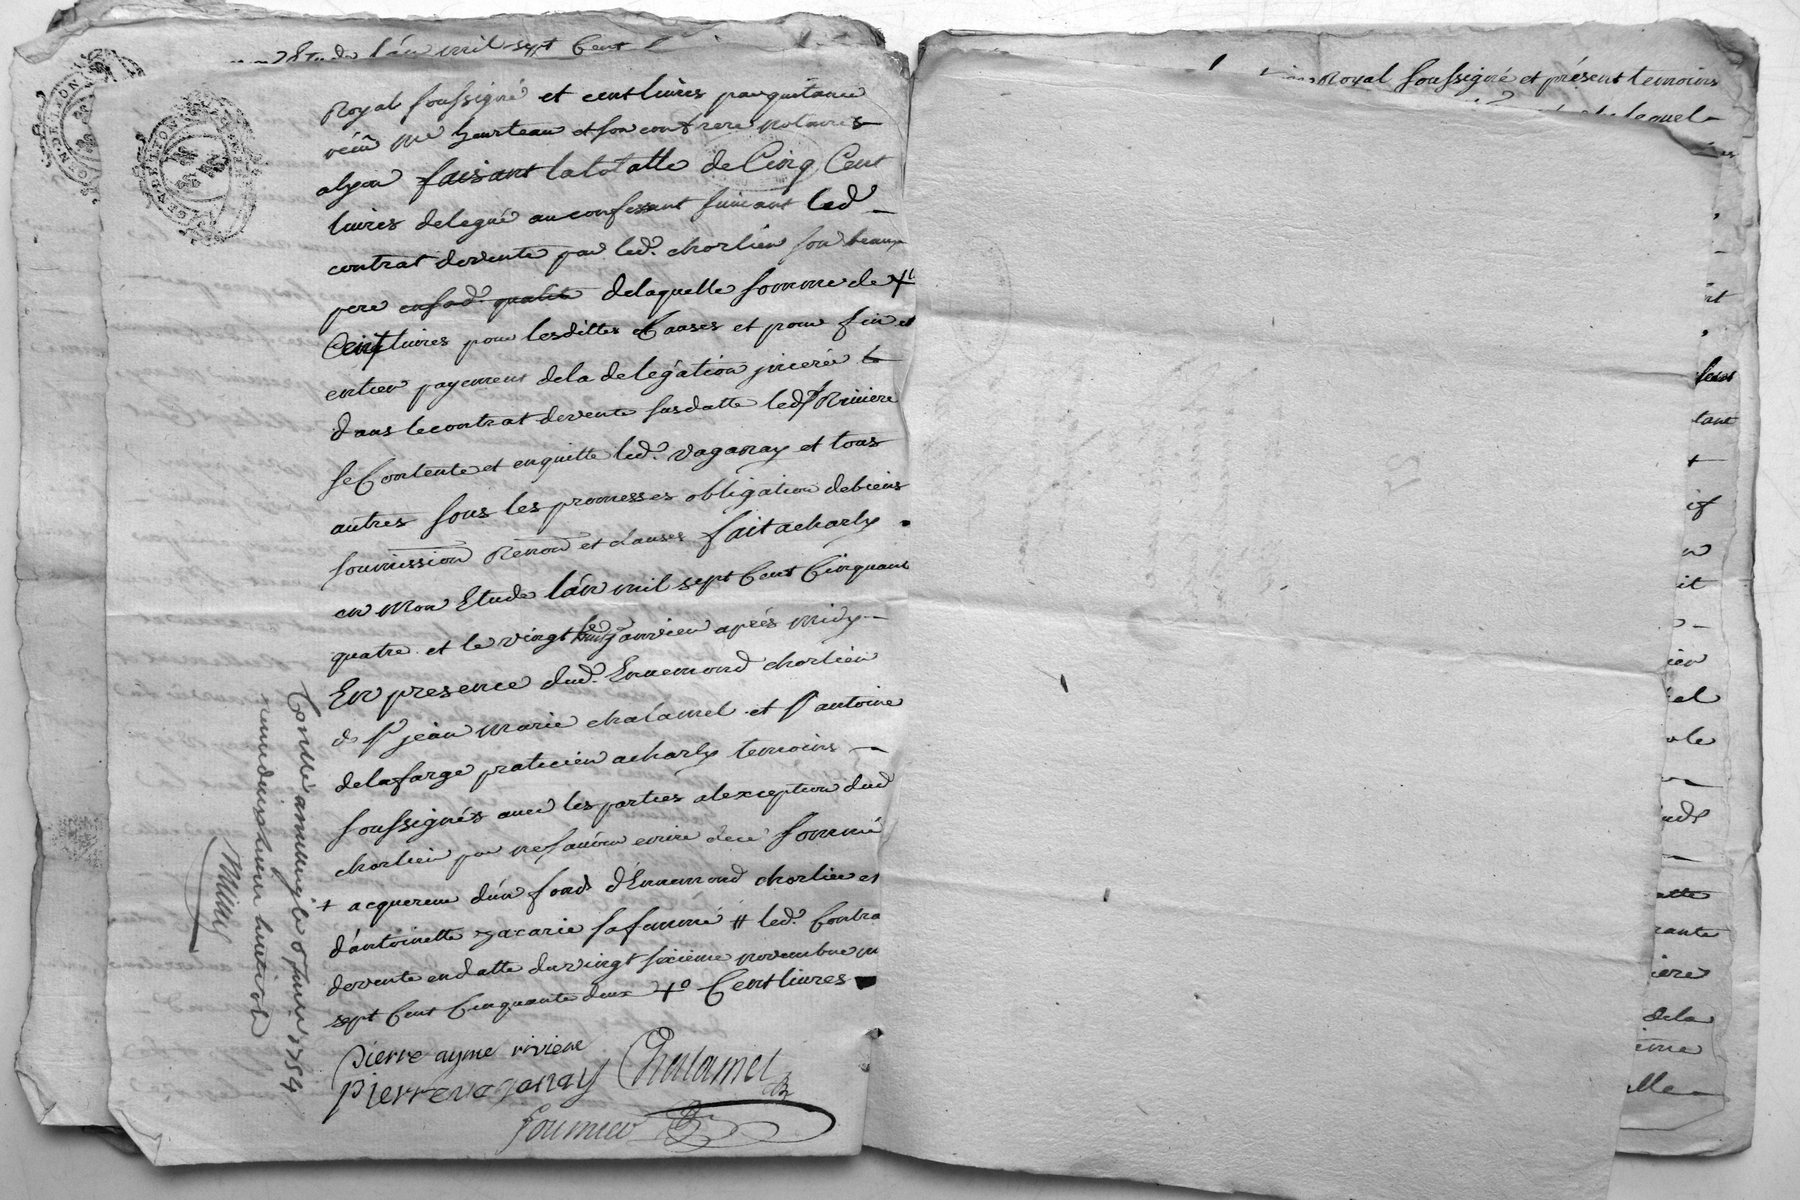 Etude l'an mil sept Cent
Royal soussigné et cent livres par quittance
receu Me heurteau et son confrere notaires
alyon faisant la totalle de Cinq Cent
livres delegué au confessant suivant led
contrat de vente par led. chorlieu son beau
pere en sad. qualité de laquelle somme de +
Cent livres pour lesdittes Causes et pour fin et
entier payement de la delegation inserée
dans le contrat de vente susdatte led. Riviere
se Contente et en quitte led. vaganay et tous
autres sous les promesses obligation de biens
soumission Renon et clauses fait a charly
en mon Etude l'an mil sept Cent Cinquante
quatre et le vingt janvier après midy
En presence dud. Ennemond chorlieu
de sr jean marie chalamel et sr antoine
delafarge praticien a charly temoins
soussignés avec les parties a l'exception dud
chorlieu pour ne sçavoir ecrire de ce sommé
+ acquereur d'un fond d'Ennemond chorlieu et
d'antoinette zacarie sa femme # led. Contra
de vente en datte du vingt sixieme novembre m
sept Cent Cinquante deux +o Cent livres
pierre ayme riviere
pierre vaganay Chalamel
fournier
1754
Royal soussigné et présent temoins
lequel
tant
it
ieu
el
rante
iere
dela
ieme
alle